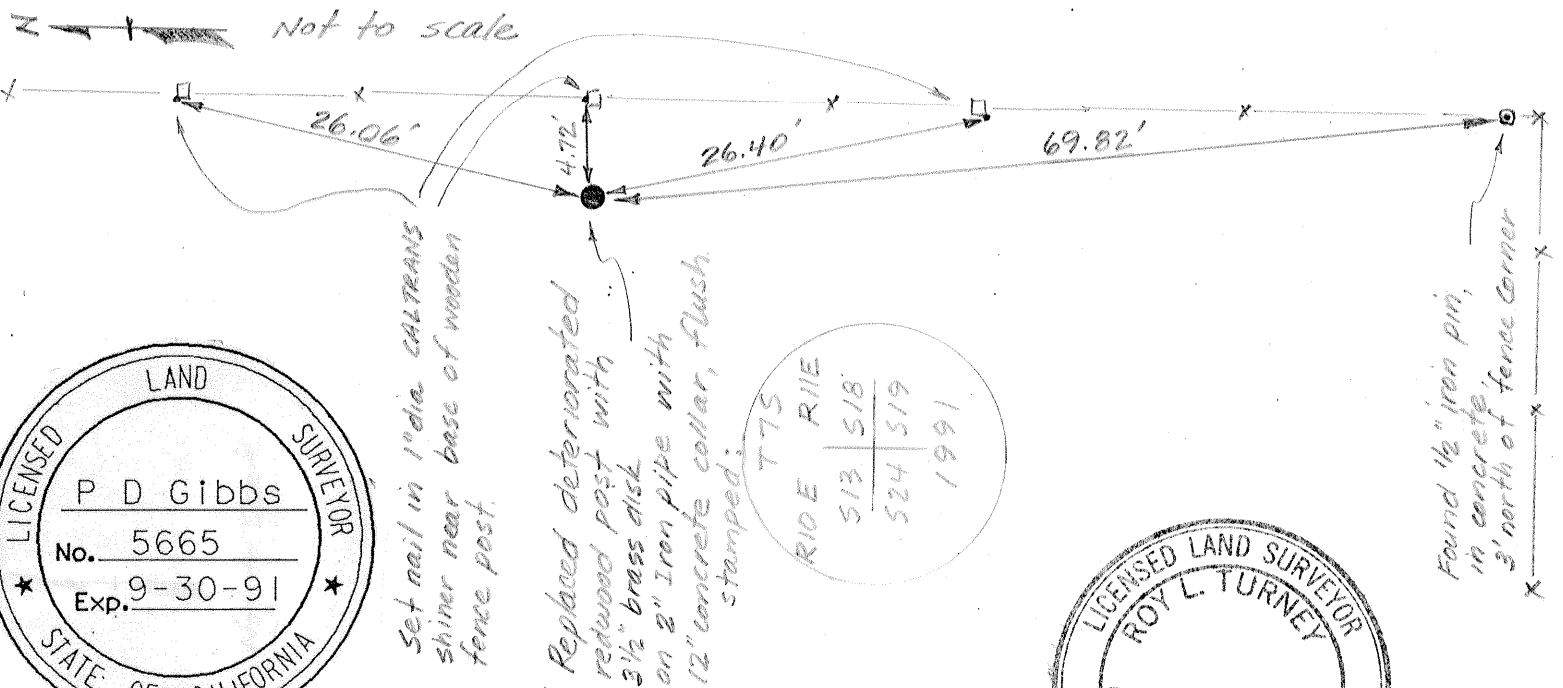 N
Not to scale
26.06'
4.72'
26.40'
69.82'
Set nail in 1" dia CALTRANS
shiner near base of wooden
fence post.
Replaced deteriorated
redwood post with
3 1/2" brass disk
on 2" Iron pipe with
12" concrete collar, flush.
stamped:
T7S
R10E R11E
S13 S18
S24 S19
1991
Found 1/2" iron pin,
in concrete,
3' north of fence corner
LICENSED LAND SURVEYOR
P D Gibbs
No. 5665
Exp. 9-30-91
STATE OF CALIFORNIA
LICENSED LAND SURVEYOR
ROY L. TURNEY